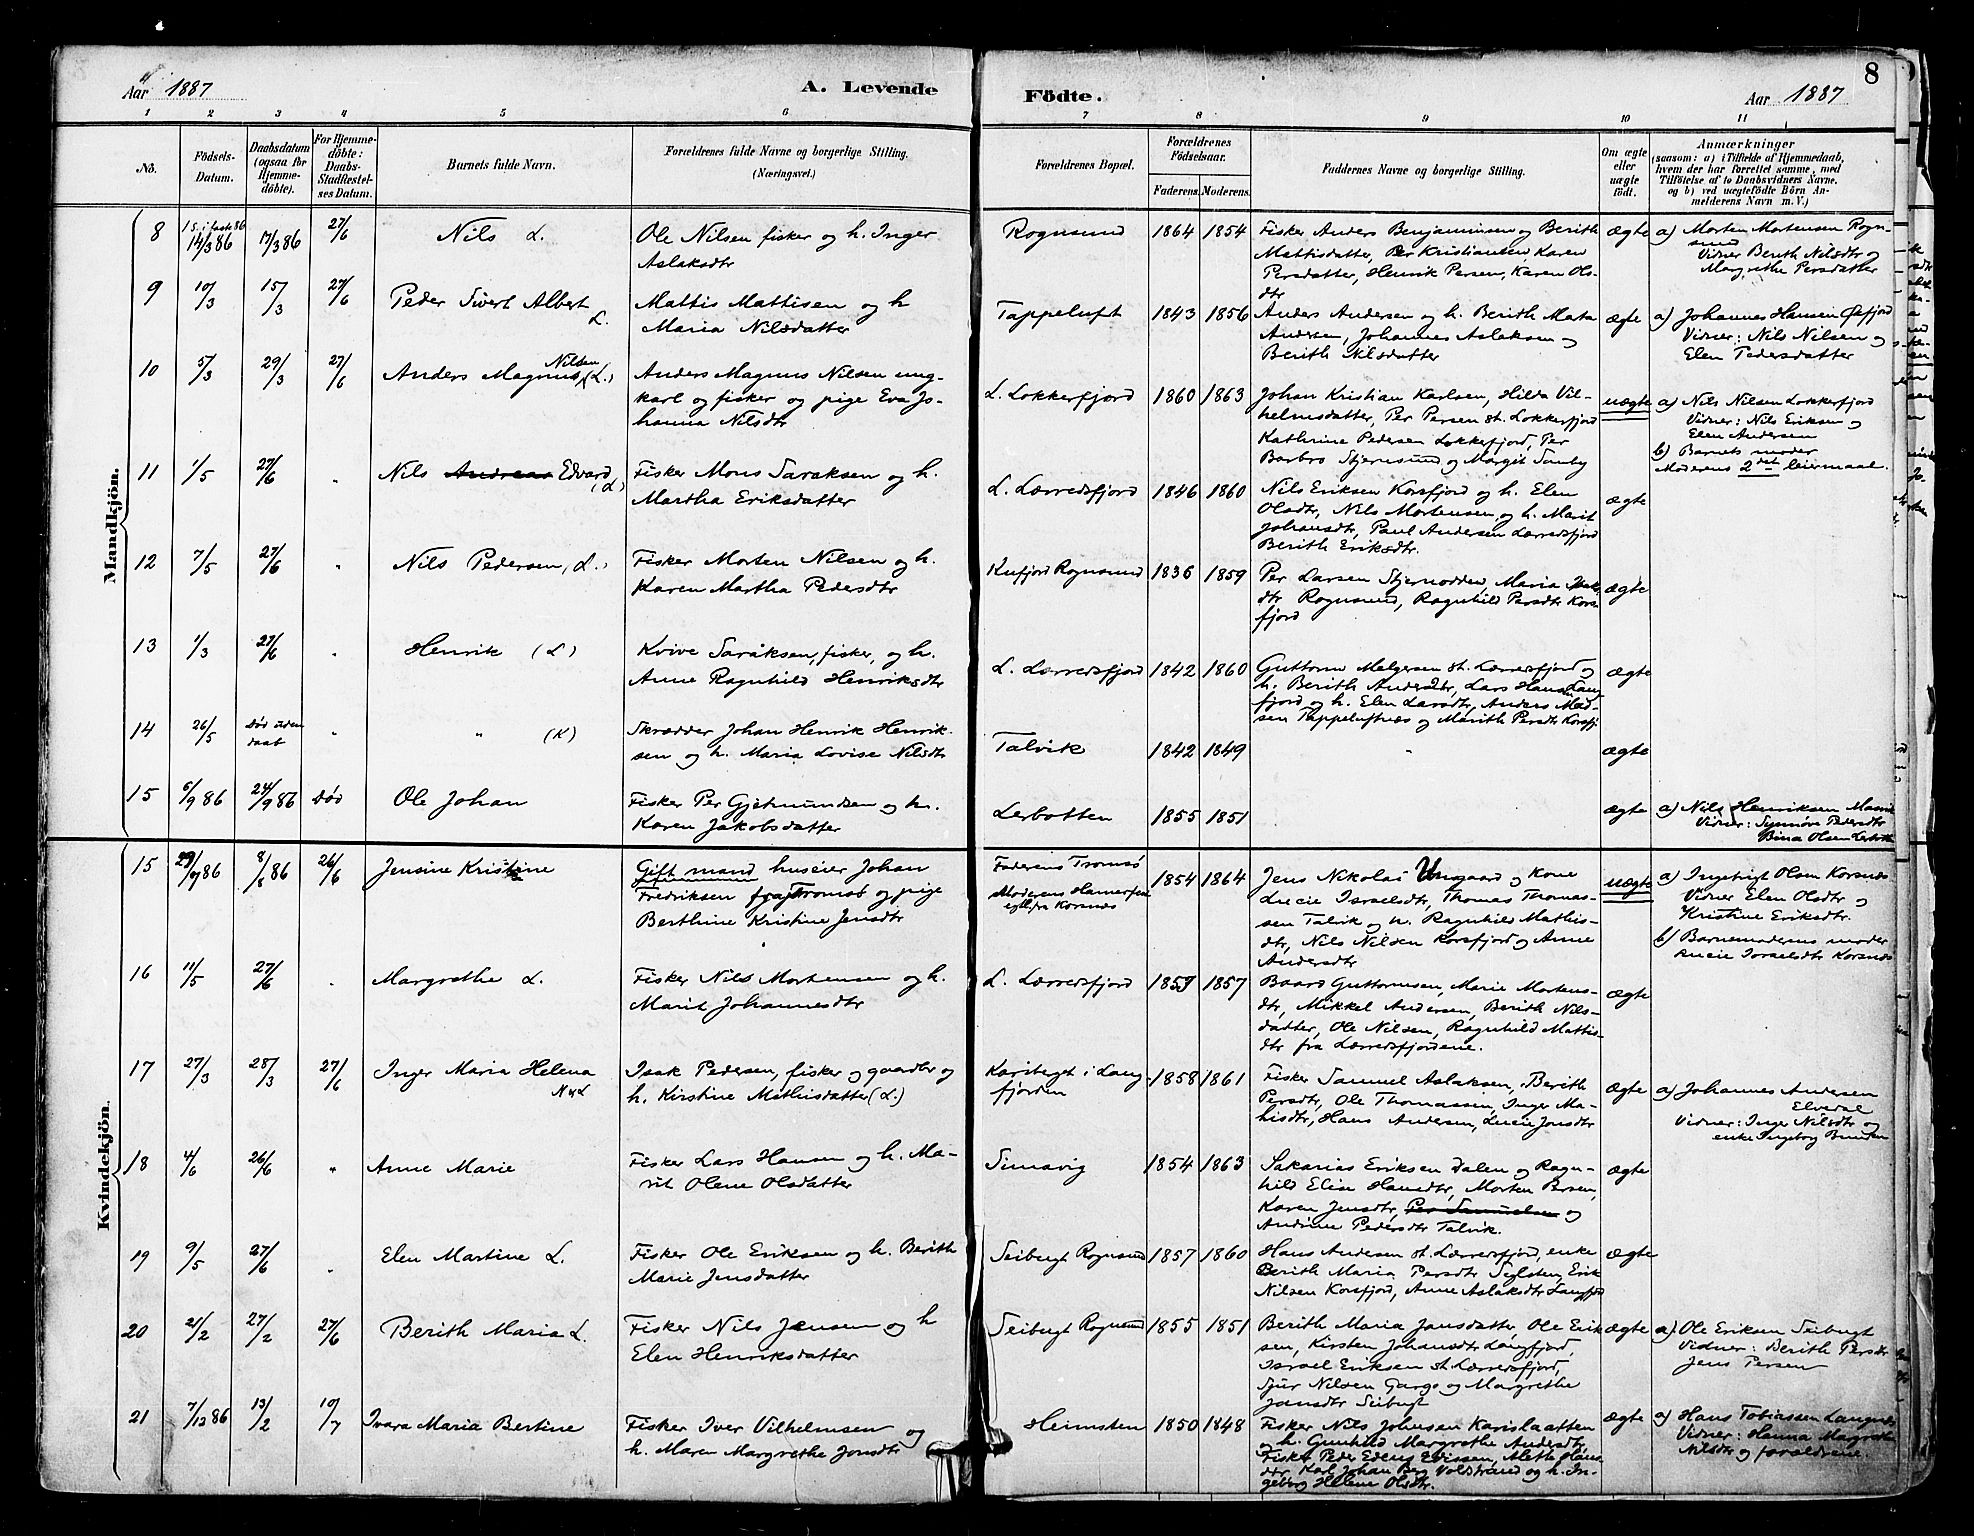 Aar 1887
A. Levende
Födte.
Aar 1887
8
1 2 3 4 5 6 7 8 9 10 11
No.
Födsels-
Datum.
Daabsdatum
(ogsaa for
Hjemme-
döbte).
For Hjemme-
döbte:
Daabs-
Stadfæstel-
ses Datum.
Barnets fulde Navn.
Forældrenes fulde Navne og borgerlige Stilling.
(Næringsvei.)
Forældrenes Bopæl.
Forældrenes
Födselsaar.
Faderens. Moderens.
Faddernes Navne og borgerlige Stilling.
Om ægte
eller
uægte
födt.
Anmærkninger
(saasom: a) i Tilfælde af Hjemmedaab,
hvem der har forrettet samme, med
Tilföielse af to Daabsvidners Navne.
og b) ved uægtefödte Börn An-
melderens Navn m. V.)
Mandkjön.
8 14/3 86 17/3 86 27/6 Nils L.
Ole Nilsen fisker og h. Inger
Aslaksdtr
Rognsund 1864 1854
Fisker Anders Benjaminsen og Berith
Mattisdatter, Per Kristiansen, Karen
Persdatter, Henrik Persen, Karen Ols-
dtr
ægte
a) Morten Mortensen Rogn-
sund
Vidner Berith Nilsdtr og
Margrethe Persdatter
9 10/3 15/3 27/6 Peder Sivert Albert
L.
Mattis Mattisen og h
Maria Nilsdatter
Tappeluft 1843 1856
Anders Andersen og h. Berith Mata
Andersen, Johannes Aslaksen og
Berith Nilsdatter
ægte
a) Johannes Hansen
Vidner: Nils Nilsen og
Elen Pedersdatter
10 5/3 29/3 27/6 Anders Magnus Nilsen (L.)
Anders Magnus Nilsen ung-
karl og fisker og pige Eva Jo-
hanna Nilsdtr
L. Lokkerfjord 1860 1863
Johan Kristian Karlsen, Hilda Vil-
helmsdatter, Per Persen st. Lokkerfjord
Kathrine Pedersen Lokkerfjord, Per
Barbro Stjernsund og Margit
uægte
a) Nils Nilsen Lokkerfjord
Vidner: Nils Eriksen og
Elen Andersen
b) Barnets moder
Moderens 2det leiermaal.
11 1/5 27/6 " Nils Andreas Edvard
(L)
Fisker Mons Saraksen og h.
Martha Eriksdatter
L. Lærredsfjord 1846 1860
Nils Eriksen Korsfjord og h. Elen
Olsdtr, Nils Mortensen og h. Marit
Johansdtr, Paul Andersen Lærredsfjord
Berith Eriksdtr.
ægte
12 7/5 27/6 " Nils Pedersen (L.)
Fisker Morten Nilsen og h.
Karen Martha Pedersdtr
Kufjord Rognsund 1836 1859
Per Larsen Stjernodden, Maria
dtr Rognsund, Ragnhild Persdtr Kors-
fjord
ægte
13 1/3 27/6 " Henrik (L)
Kvive Saraksen, fisker, og h.
Anne Ragnhild Henriksdtr
L. Lærredsfjord 1842 1860
Guttorm Melgersen st. Lærredsfjord og
h. Berith Andersdtr, Lars Hansen Lang-
fjord og h. Elen Larsdtr, Anders Mad-
sen Tappeluftnæs og Marith Persdtr Korsfj.
ægte
14 26/5 Død uden
daab " " (K)
Skrædder Johan Henrik Henrik-
sen og h. Maria Lovise Nilsdtr
Talvik 1842 1849 " ægte
15 6/9 86 24/9 86 død Ole Johan
Fisker Per Gjetmundsen og h.
Karen Jakobsdatter
Lerbotten 1855 1851 ægte
a) Nils Henriksen
Vidner: Synnøve Pedersdtr
Bina Olsen
Kvindekjön.
15 29/7 86 8/8 86 26/6 Jensine Kristine
Gift mand huseier Johan
Fredriksen fra Tromsø og pige
Berthine Kristine Jensdtr
Faderens Tromsø
Moderens Hammerfest
egtl. fra Korsnæs
1854 1864
Jens Nikolai Ungaard og Kone
Lucie Israelsdtr, Thomas Thomas-
sen Talvik og h. Ragnhild Mathis-
dtr, Nils Nilsen Korsfjord og Anne
Andersdtr
uægte
a) Ingebrigt Olsen Korsnæs
Vidner Elen Olsdtr og
Kristine Eriksdtr.
b) Barnemoderens moder
Lucie Israelsdtr Korsnæs
16 11/5 27/6 " Margrethe L.
Fisker Nils Mortensen og h.
Marit Johannesdtr
L. Lærredsfjord 1859 1857
Baard Guttormsen, Marie Mortens-
dtr, Mikkel Andersen, Berith Nils-
datter, Ole Nilsen, Ragnhild Mattis-
dtr fra Lærredsfjordene.
ægte
17 27/3 28/3 27/6 Inger Maria Helena
N & L
Isak Pedersen, fisker og gaardbr og
h. Kirstine Mathisdatter (L.)
i Lang-
fjorden
1858 1861
Fisker Samuel Aslaksen, Berith
Persdtr, Ole Thomassen, Inger Ma-
hisdtr, Hans Andersen, Lucie Jonsdtr
ægte
a) Johannes Andersen
Elvedal
Vidner: Inger Nilsdtr og
enke Ingebrg
18 4/6 26/6 " Anne Marie
Fisker Lars Hansen og h. Ma-
rit Olene Olsdatter
Simavig 1854 1863
Sakarias Eriksen Dalen og Ragn-
hild Elise Hansdtr, Morten Persen,
Karen Jensdtr, Per Samuelsen og
Andrine Pedersdtr Talvik.
ægte
19 9/5 27/6 " Elen Martine L.
Fisker Ole Eriksen og h. Berith
Marie Jensdatter
Seibugt Rognsund 1857 1860
Hans Andersen st. Lærredsfjord, enke
Berith Maria Persdtr, Erik
Nilsen Korsfjord, Anne Aslaksdtr Langfjord
ægte
20 21/2 27/2 27/6 Berith Maria L.
Fisker Nils Jensen og h
Elen Henriksdatter
Seibugt Rognsund 1855 1851
Berith Maria Jonsdatter, Ole Erik-
sen, Kirsten Johansdtr Langfjord,
Israel Eriksen st. Lærredsfjord,
Sjur Nilsen Gargo og Margrethe
Jonsdtr Seibugt
ægte
a) Ole Eriksen Seibugt
Vidner: Berith Persdtr
Jens Persen
21 7/12 86 13/2 10/7 Ivara Maria Bertine
Fisker Iver Vilhelmsen og
h. Maren Margrethe Jonsdtr
Heimsten 1850 1848
Fisker Nils Johnsen
og h. Gunhild Margrethe Andersdtr,
Fisker Peder Edens, Aleth Hans-
dtr, Karl Johan Berg Volstrand og h. In-
geborg Helene Olsdtr.
ægte
a) Hans Tobiassen Langnæs
Vidner: Hanna Margrethe
Nilsdtr og forældrene.